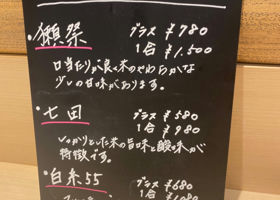 ・獺祭 グラス ¥780
1合 ¥1,500
口当たりが良く米のやわらかな
少しの甘味があります。
・七田 グラス ¥580
1合 ¥980
しっかりとした米の旨味と酸味が
特徴です。
・白糸55 グラス ¥680
1合